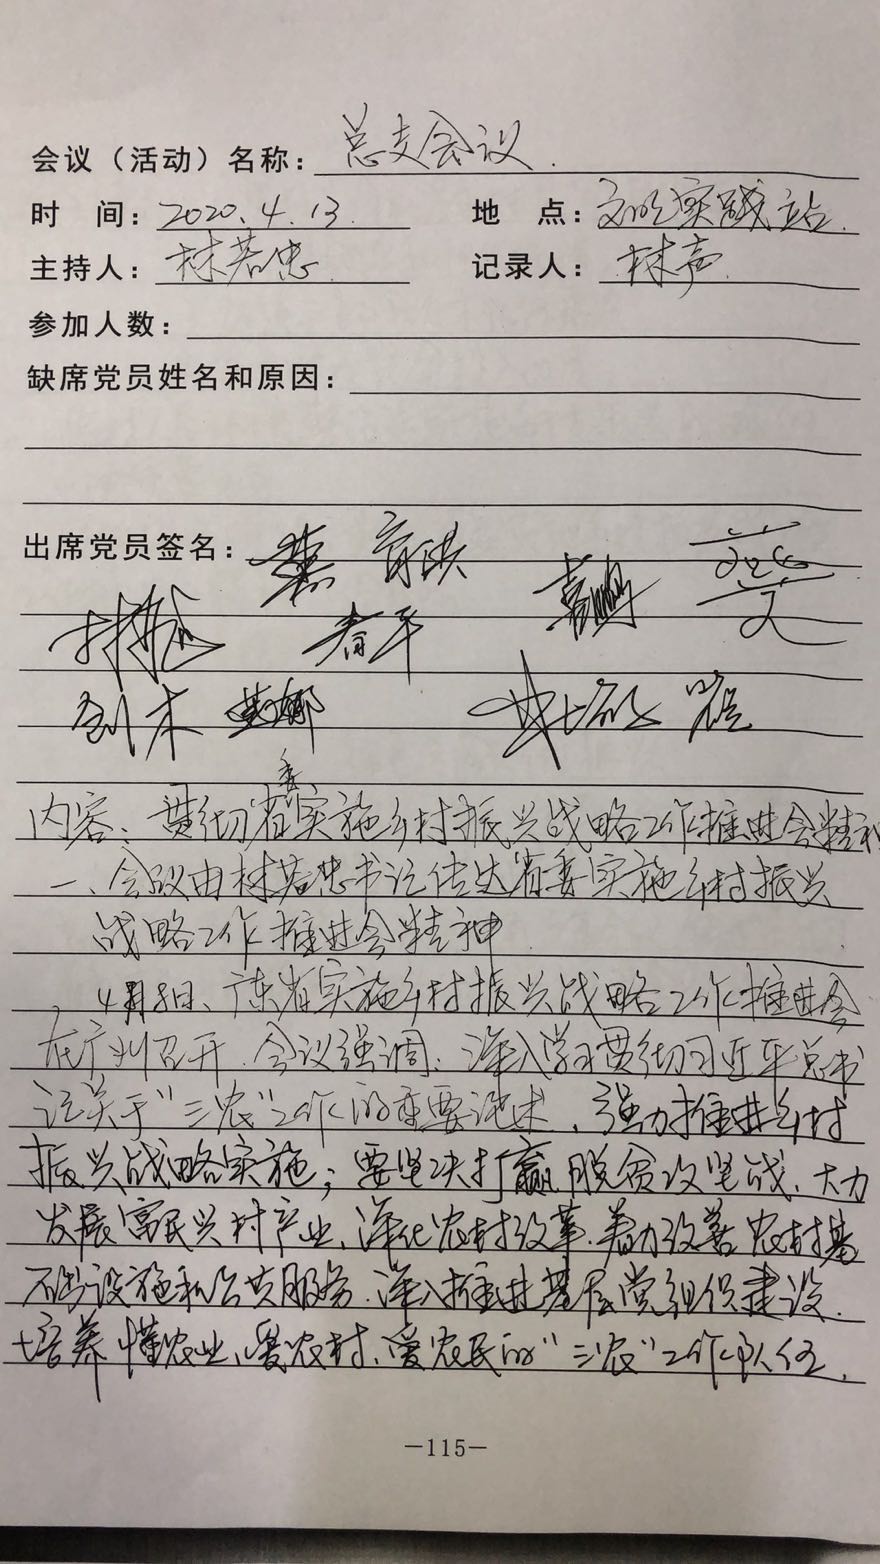 会议（活动）名称：总支会议.
时 间：2020.4.13. 地 点：文明实践站.
主持人：林若忠. 记录人：林声.
参加人数：
缺席党员姓名和原因：
出席党员签名：
内容：贯彻省委实施乡村振兴战略工作推进会精神
一、会议由林若忠书记传达省委实施乡村振兴
战略工作推进会精神.
4月8日、广东省实施乡村振兴战略工作推进会
在广州召开.会议强调：深入学习贯彻习近平总书
记关于"三农"工作的重要论述、强力推进乡村
振兴战略实施；要坚决打赢脱贫攻坚战、大力
发展富民兴村产业、深化农村改革.着力改善农村基
础设施和公共服务.深入推进基层党组织建设.
培养懂农业、爱农村、爱农民的"三农"工作队伍,
－115－